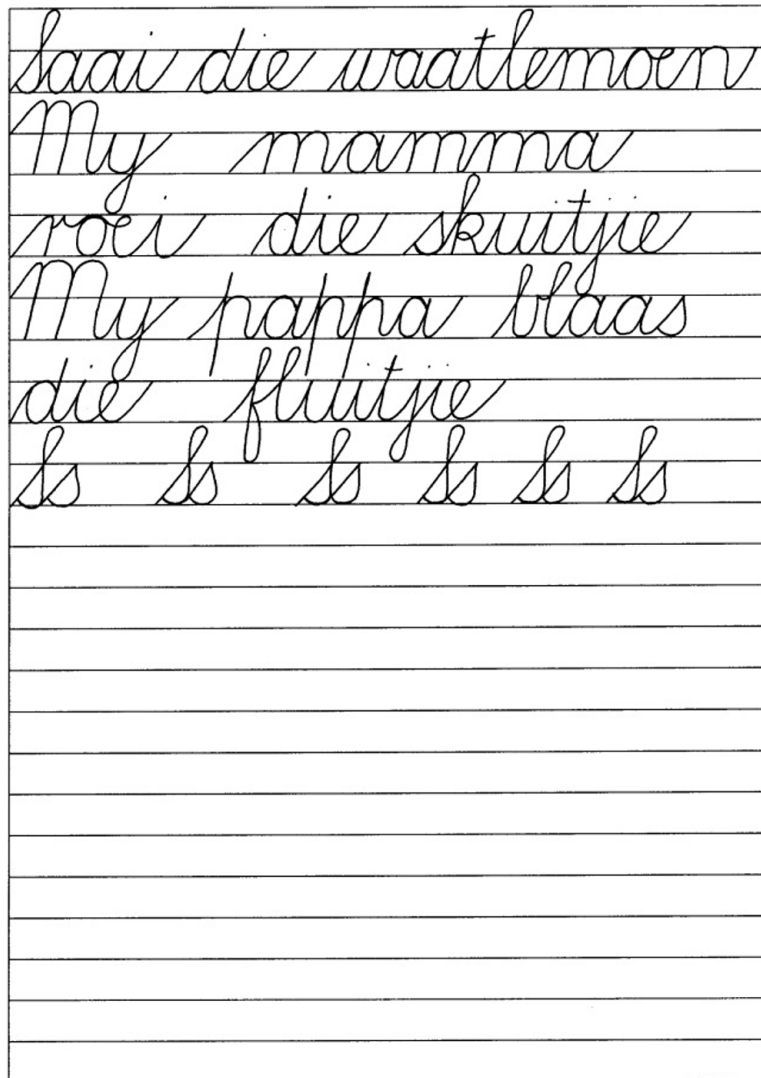 Saai die waatlemoen
My mamma
roei die skuitjie
My pappa blaas
die fluitjie
Ss Ss Ss Ss Ss Ss